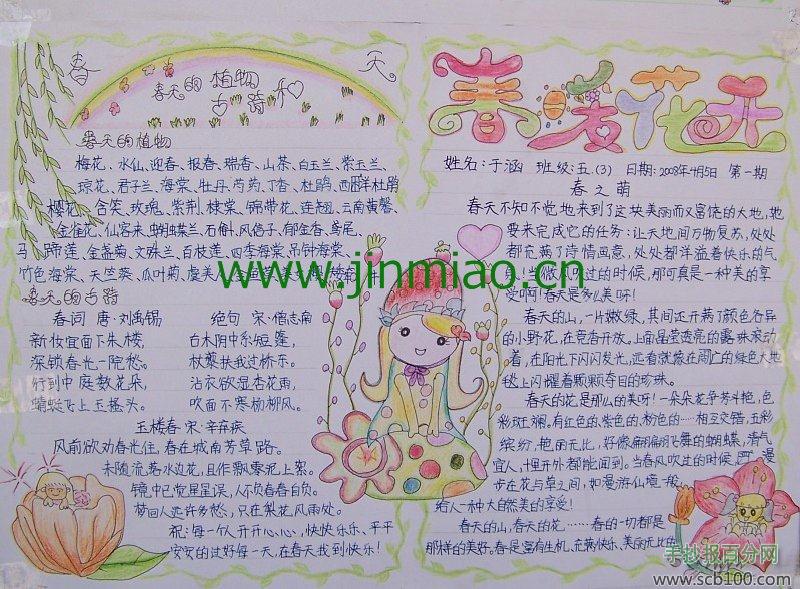 春 天
春天的植物
和
古诗
春天的植物
梅花、水仙、迎春、报春、瑞香、山茶、白玉兰、紫玉兰、
琼花、君子兰、海棠、牡丹、芍药、丁香、杜鹃、西洋杜鹃
樱花、含笑、玫瑰、紫荆、棣棠、锦带花、连翘、云南黄馨、
金雀花、仙客来、蝴蝶兰、石斛、风信子、郁金香、鸢尾、
马蹄莲、金盏菊、文殊兰、百枝莲、四季海棠、吊钟海棠、
竹色海棠、天竺葵、瓜叶菊、虞美
春天的古诗
春词 唐·刘禹锡
新妆宜面下朱楼,
深锁春光一院愁。
行到中庭数花朵,
蜻蜓飞上玉搔头。
绝句 宋·僧志南
古木阴中系短篷,
杖藜扶我过桥东。
沾衣欲湿杏花雨,
吹面不寒杨柳风。
玉楼春 宋·辛弃疾
风前欲劝春光住,春在城南芳草路。
未随流落水边花,且作飘零泥上絮。
镜中已觉星星误,人不负春春自负。
梦回人远许多愁,只在梨花风雨处。
祝:每一个人开开心心,快快乐乐、平平
安安的过好每一天,在春天找到快乐!
春暖花开
姓名:于涵 班级:五.(3) 日期:2008年4月5日 第一期
春之萌
春天不知不觉地来到了这块美丽而又富饶的大地,她
要来完成它的任务:让天地间万物复苏,处处
都充满了诗情画意,处处都洋溢着快乐的气
当微风吹过的时候,那可真是一种美的享
受啊!春天是多么美呀!
春天的山,一片嫩绿,其间还开满了颜色各异
的小野花,在竞香开放,上面晶莹透亮的露珠滚动
着,在阳光下闪闪发光,远看就像在广阔的绿色大地
毯上闪耀着颗颗夺目的珍珠。
春天的花是那么的美呀!一朵朵花争芳斗艳,色
彩斑斓,有红色的、紫色的、粉色的……相互交错,五彩
缤纷,艳丽无比,好像翩翩飞舞的蝴蝶,清气
宜人,十里开外都能闻到。当春风吹过的时候,漫
步在花与草之间,如漫游仙境一般
给人一种大自然美的享受!
春天的山,春天的花……春的一切都是
那样的美好,春是富有生机、充满快乐、美丽无比的
www.jinmiao.cn
手抄报百分网
www.scb100.com